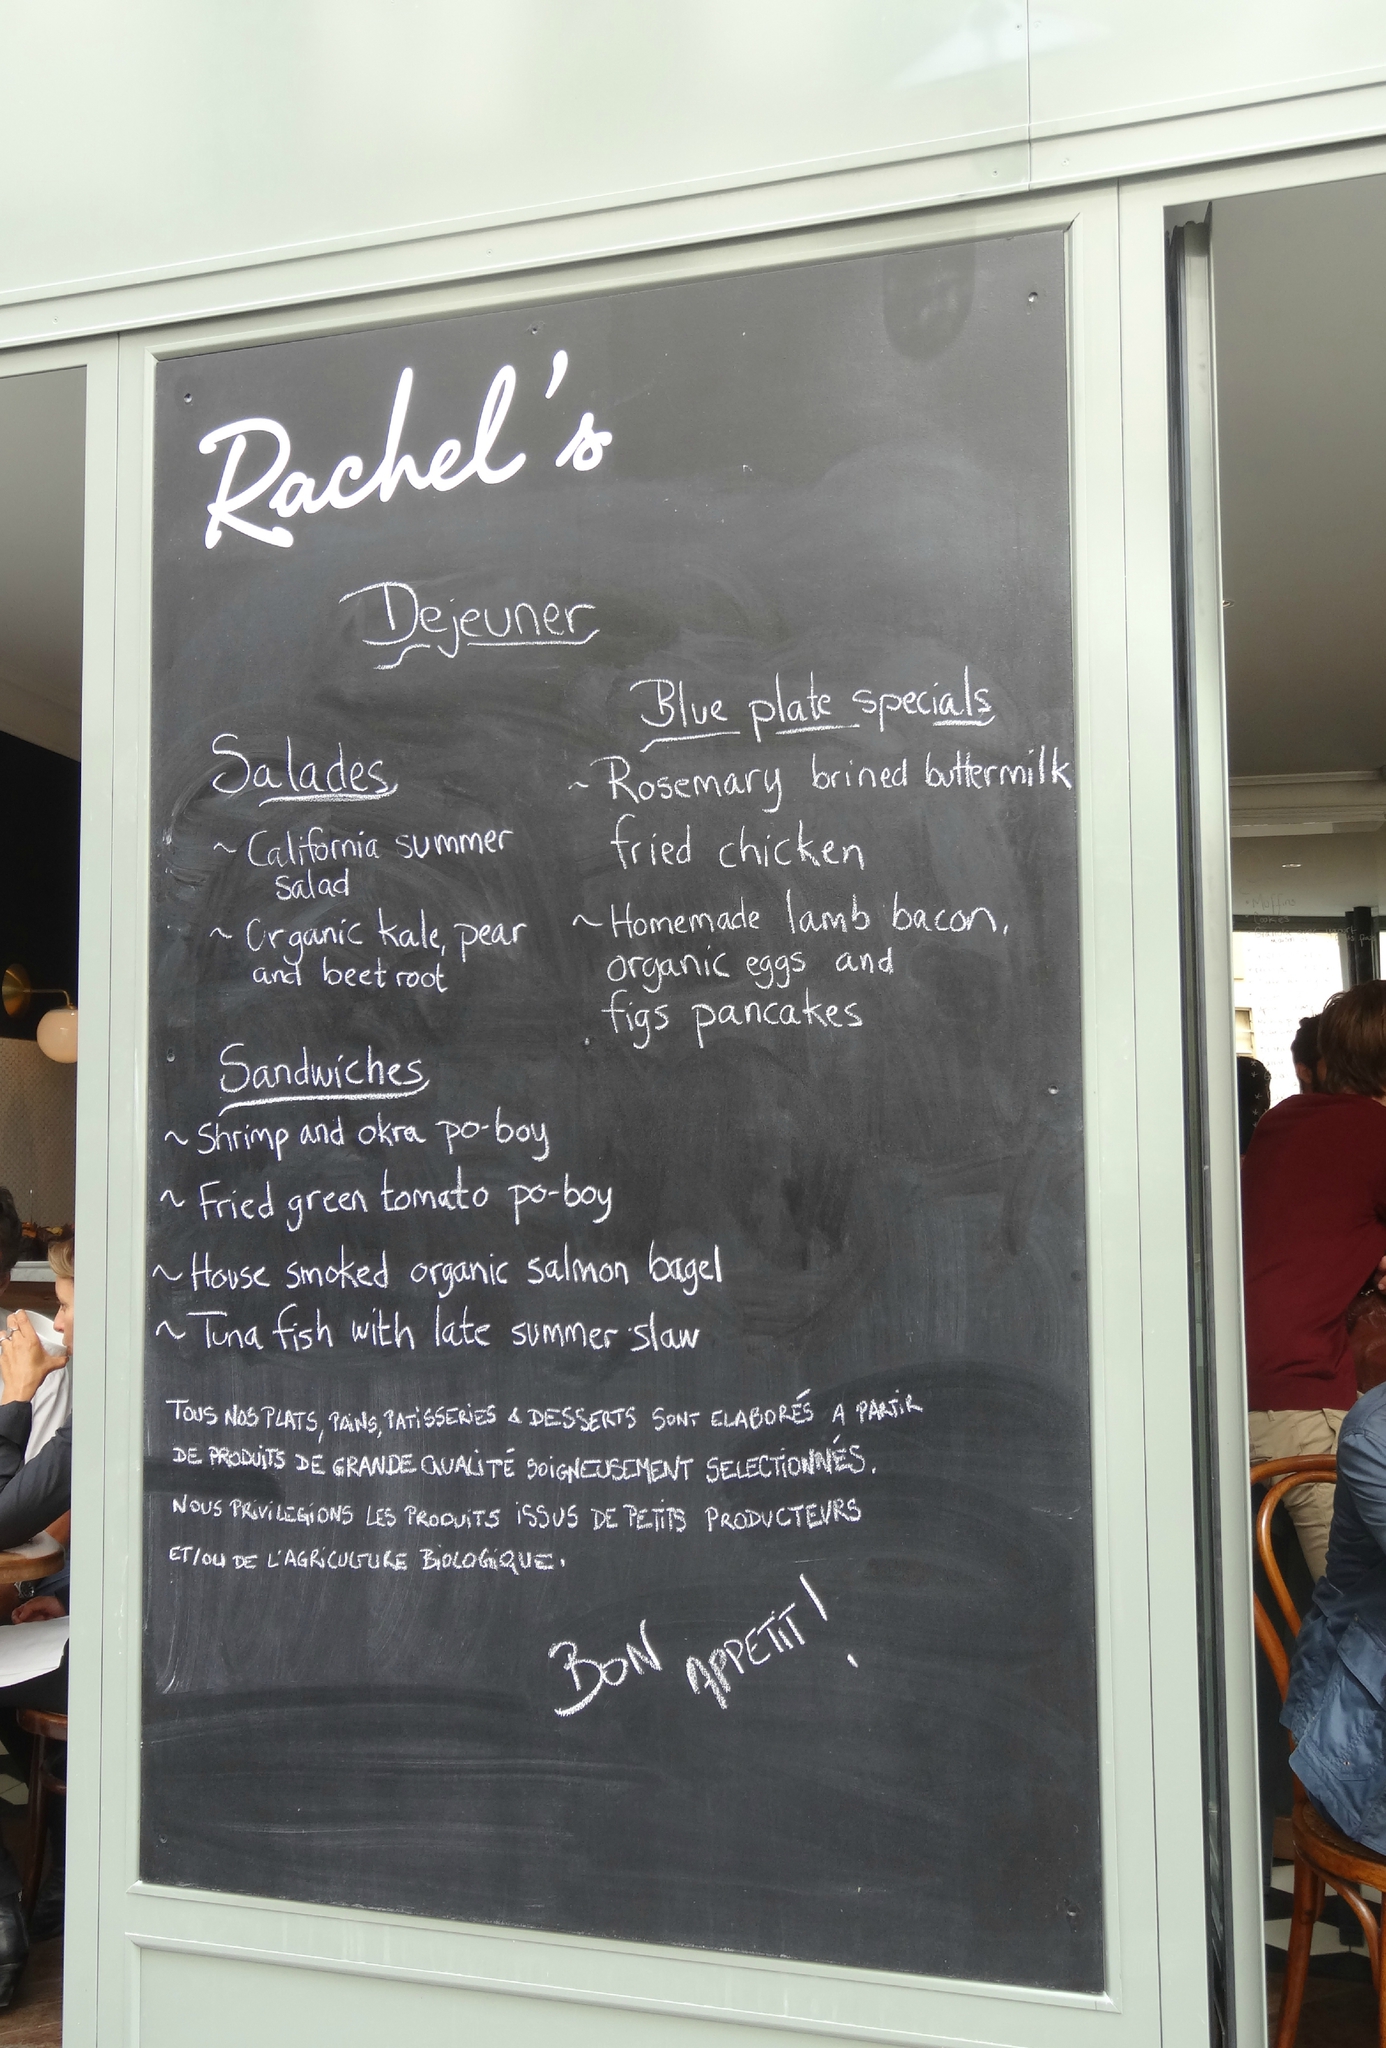 Rachel's
Dejeuner
Salades
~ California summer
salad
~ Organic kale, pear
and beet root
Blue plate specials
~ Rosemary brined buttermilk
fried chicken
~ Homemade lamb bacon,
organic eggs and
figs pancakes
Sandwiches
~ Shrimp and okra po-boy
~ Fried green tomato po-boy
~ House smoked organic salmon bagel
~ Tuna fish with late summer slaw
TOUS NOS PLATS, PAINS, PATISSERIES & DESSERTS SONT ELABORÉS A PARTIR
DE PRODUITS DE GRANDE QUALITÉ SOIGNEUSEMENT SELECTIONNÉS.
NOUS PRIVILEGIONS LES PRODUITS ISSUS DE PETITS PRODUCTEURS
ET/OU DE L'AGRICULTURE BIOLOGIQUE.
BON APPETIT!